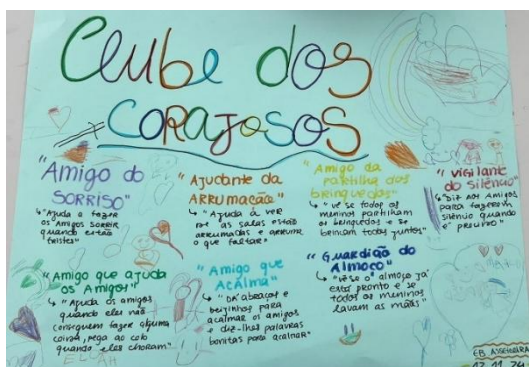 Clube dos
CORAJOSOS
"Amigo do
SORRISO"
"Ajuda a fazer
os Amigos sorrir
quando estão
tristes"
"Ajudante da
ARRUMAÇÃO"
"Ajuda a ver
se as salas estão
arrumadas e arruma
o que faltar"
"Amigo da
partilha dos
brinquedos"
"vê se todos os
meninos partilham
os brinquedos e se
brincam todos juntos"
"Vigilante
do silêncio"
"Diz aos Amigos
para fazerem
silêncio quando
é preciso"
"Amigo que ajuda
os Amigos"
"Ajuda os amigos
quando eles não
conseguem fazer alguma
coisa, pega ao colo
quando eles choram"
"Amigo que
Acalma"
"Dá abraços e
beijinhos para
acalmar os amigos
e diz-lhes palavras
bonitas para acalmar"
"Guardião do
Almoço"
"vê se o almoço já
está pronto e se
todos os meninos
lavam as mãos"
EB ASSEICEIRA
12.11.24